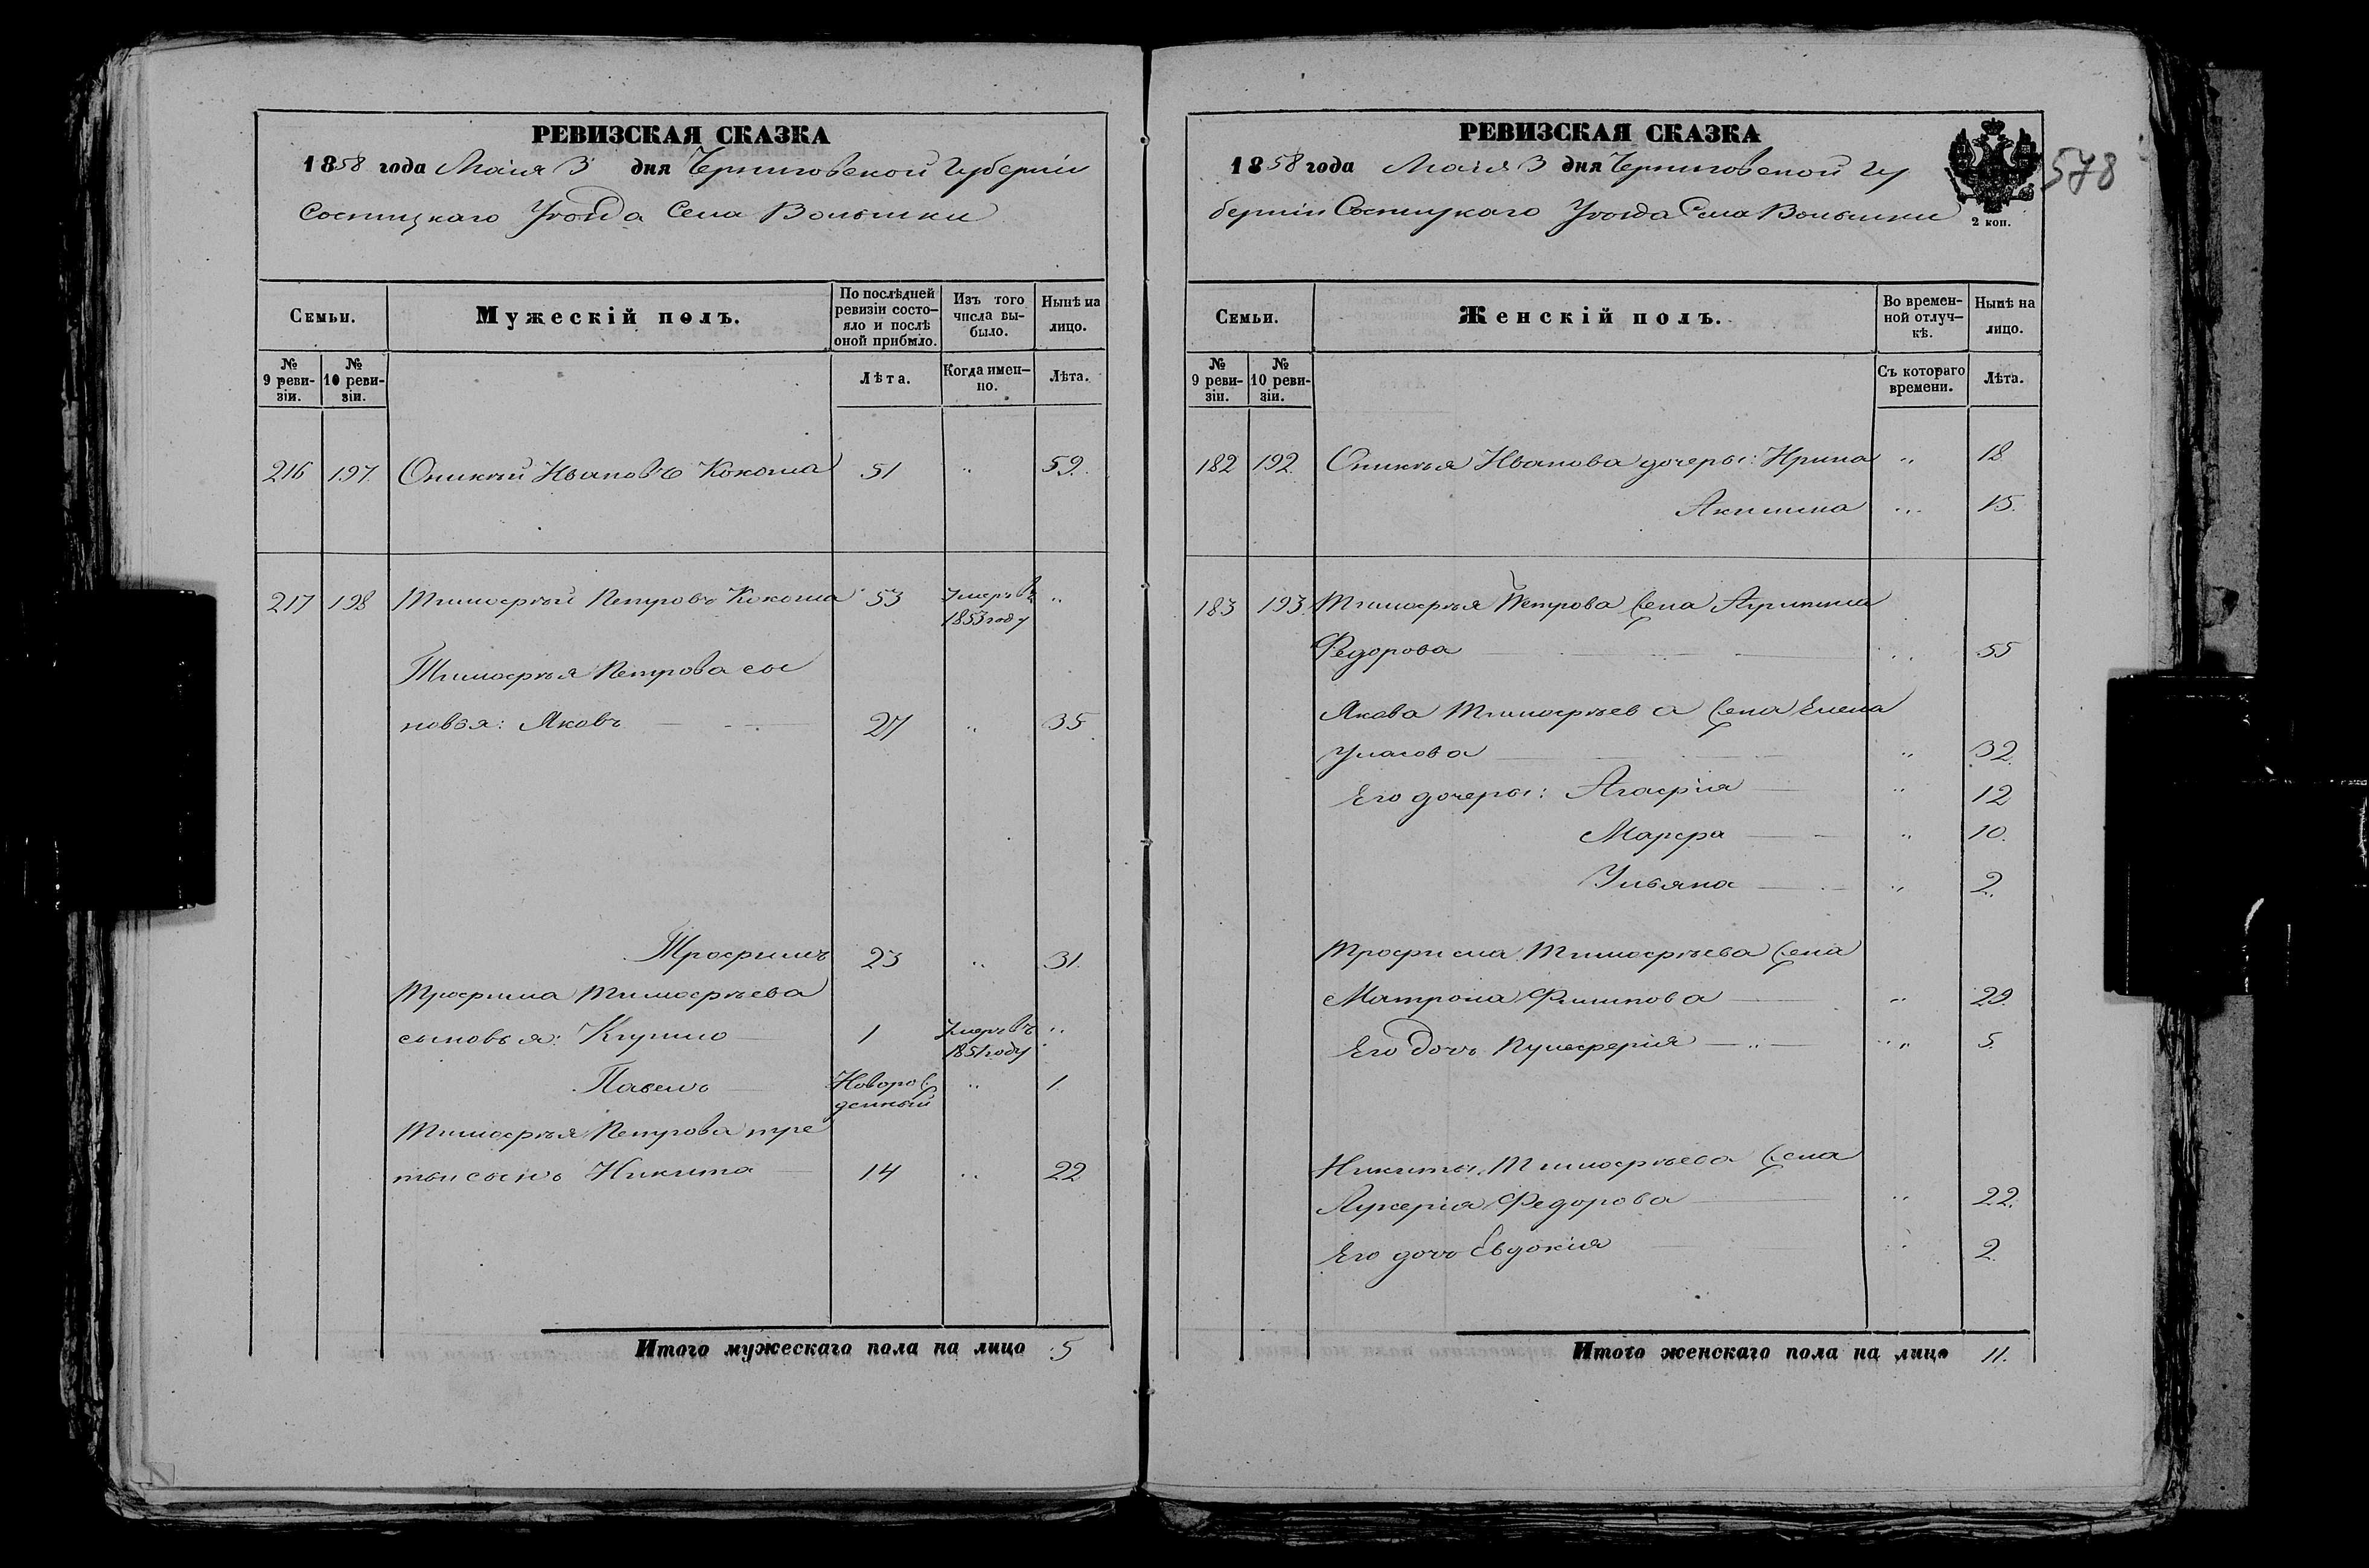 РЕВИЗСКАЯ СКАЗКА
1858 года Маія 3 дня Черниговской Губерніи
Сосницкаго Уѣзда Села Волынки
Семьи.
Мужескій полъ.
По послѣдней ревизіи состояло и послѣ оной прибыло.
Изъ того числа выбыло.
Нынѣ на лицо.
№ 9 ревизіи.
№ 10 ревизіи.
Лѣта.
Когда именно.
Лѣта.
216 197. Оникій Ивановъ Кокоша 51 " 59.
217 198 Тимофѣй Петровъ Кокоша 53 Умеръ въ "
1853 году
Тимофѣя Петрова сы
новья: Яковъ 27 " 35
Трофимъ 23 " 31.
Трофима Тимофѣева
сыновья: 1 Умеръ въ "
1851 году
Павелъ Новорож " 1.
денный
Тимофѣя Петрова тре
тьи сынъ Никита 14 " 22
Итого мужескаго пола на лицо 5
РЕВИЗСКАЯ СКАЗКА
1858 года Маія 3 дня Черниговской Гу
берніи Сосницкаго Уѣзда Села Волынки
2 коп.
578
Семьи.
Женскій полъ.
Во временной отлучкѣ.
Нынѣ на лицо.
№ 9 ревизіи.
№ 10 ревизіи.
Съ котораго времени.
Лѣта.
182 192. Оникія Иванова дочеры: Ирина " 18
Акилина " 15.
183 193. Тимофѣя Петрова жена
Федорова " 55
Якова Тимофѣева жена Елена
" 32.
Его дочеры: Агафія " 12
Марфа " 10.
Ульяна " 2.
Трофима Тимофѣева жена
Матрона Филипова " 29.
Его дочь Пульферія " 5.
Никиты Тимофѣева жена
Лукерія Федорова " 22.
Его дочь Евдокія " 2
Итого женскаго пола на лицо 11.